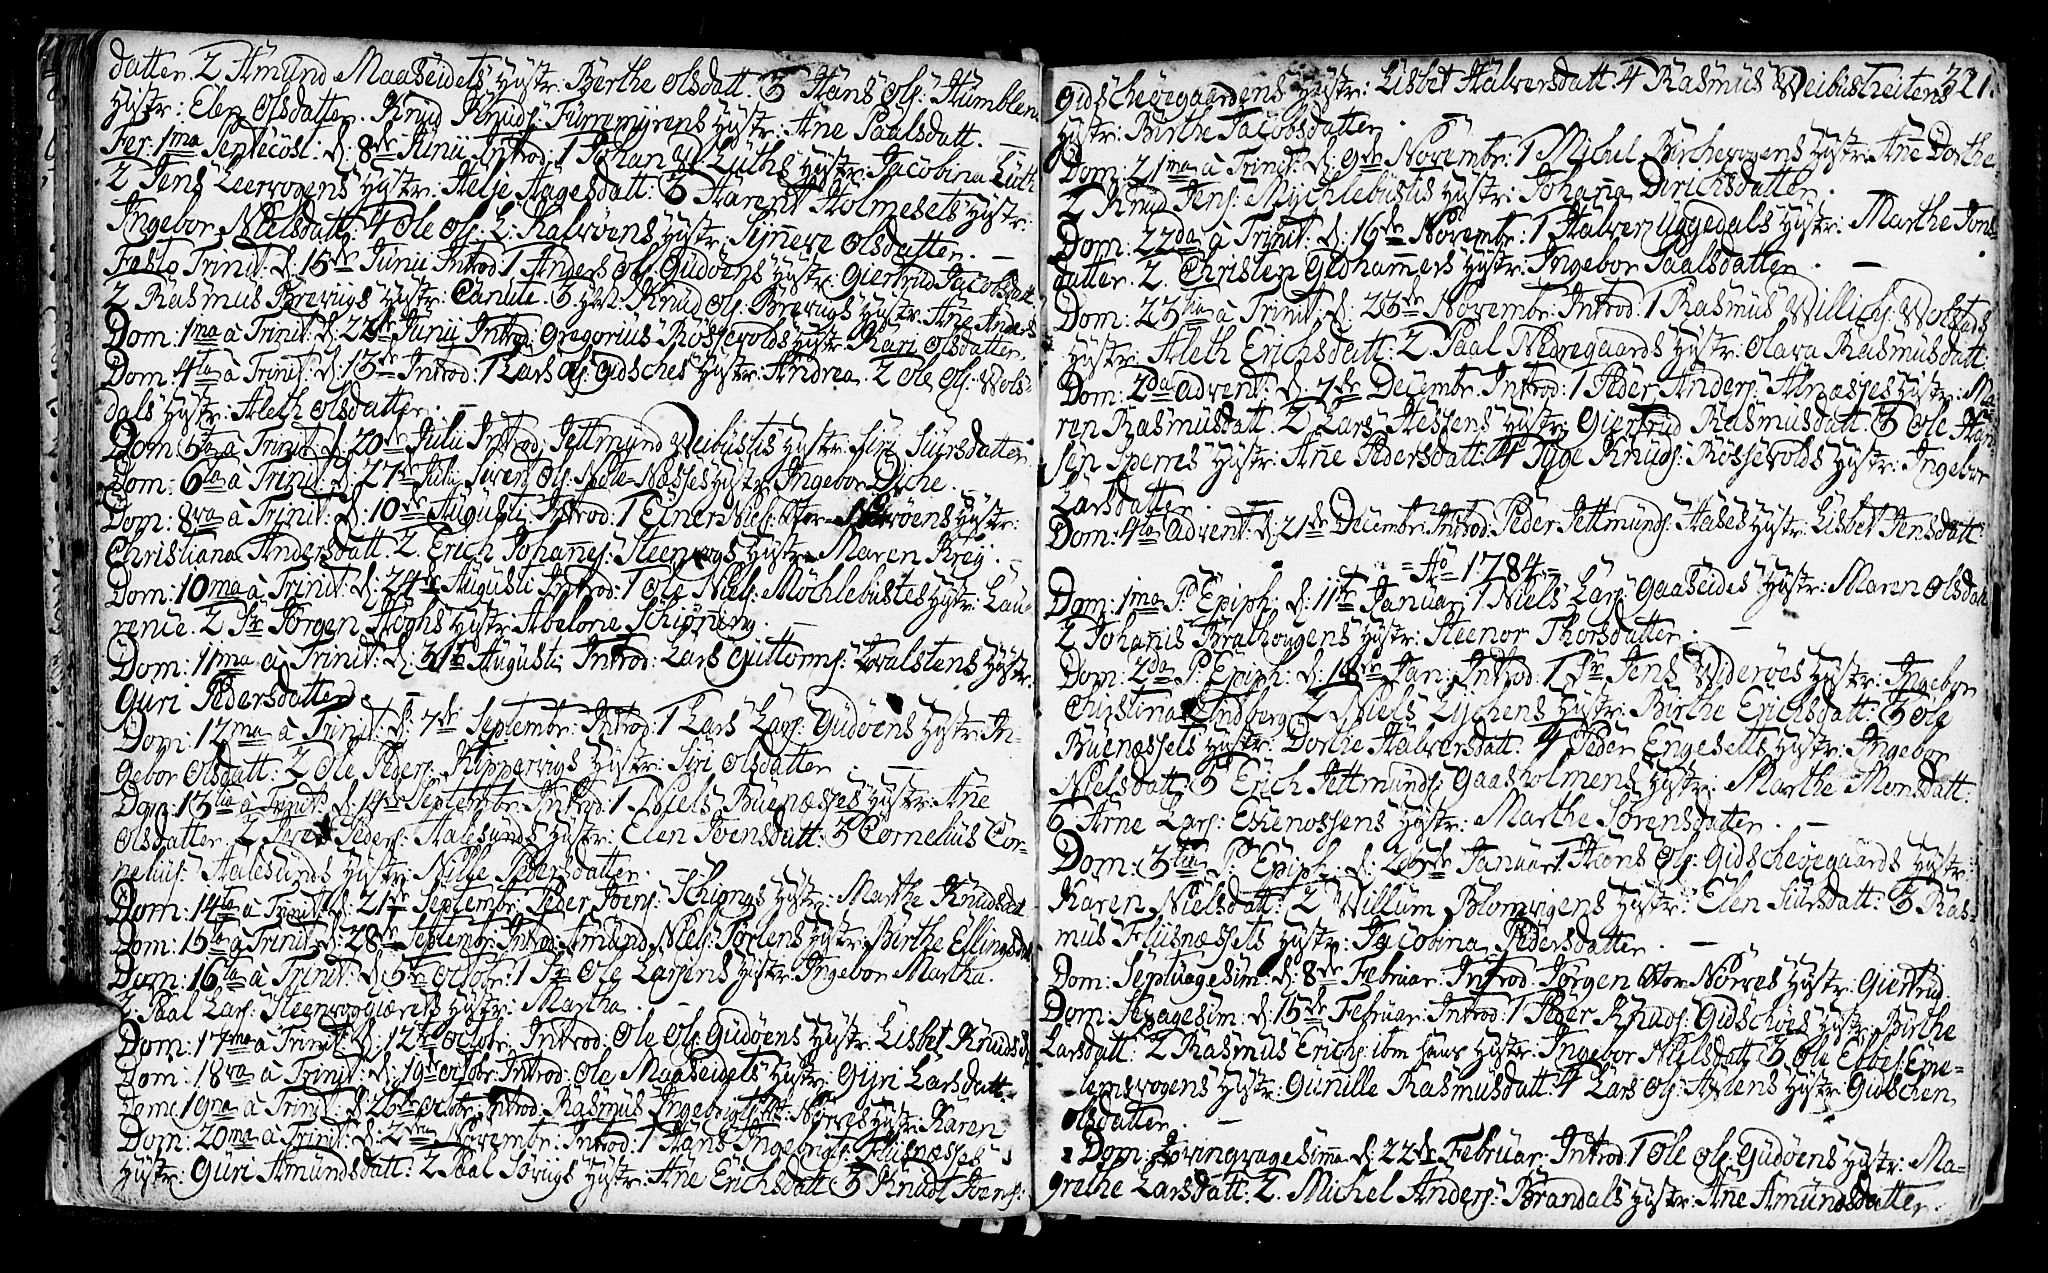 datter. 2 Amund Maaseidets hystr: Berthe Olsdatt: 3 Hans Ols: Humblens
hystr: Elen Olsdatter. Knud Knuds: Furremyrens hystr: Ane Paalsdatt.
Fer: 1ma Pentecost: d: 8de Junii Introd: 1 Johan Luths hystr: Jacobina Luth
2 Jens Leervogens hystr: Helje Hagesdatt: 3 Harend Holmesets hystr:
Ingebor Nielsdatt: 4 Ole Ols: L: Kalvøens hystr: Synneve Olsdatter. —
Festo Trinit: d: 15de Junii Introd: 1 Anders Ols: Gudøens hystr: Giertrud Jacobsdatt
2 Rasmus Brevigs hystr: Canute. 3 Knud Ols: Brevigs hystr: Ane Anders
Dom: 1ma à Trinit: d: 22de Junii Introd: Gregorius Røssevolds hystr: Kari Olsdatter.
Dom: 4ta à Trinit: d: 13de Introd: 1 Lars Ols: Gidsches hystr: Andrea. 2 Ole Ols: Wols-
dals hystr: Aleth Olsdatter. —
Dom: 5ta à Trinit: d: 20de Julii Introd: Jettmund Veibustis hystr: Siri Siursdatter.
Dom: 6ta à Trinit: d: 27de Julii Søren Ols: Næsses hystr: Ingebor Diche. —
Dom: 8va à Trinit: d: 10de Augusti Introd: 1 Einer Niels: hystr:
Christiana Andersdatt: 2. Erich Johanes: Steenvogs hystr: Maren Krej. —
Dom: 10ma à Trinit: d: 24de Augusti Introd: 1 Ole Niels: Møchlebustes hystr: Lau-
rence. 2 Sr Jørgen Høghs hystr: Abelone —
Dom: 11ma à Trinit: d: 31te Augusti Introd: Lars Guttorms: Kvalstens hystr:
Guri Pedersdatter. —
Dom: 12ma à Trinit: d: 7de Septembr: Introd: 1 Lars Lars: Gudøens hystr: In-
gebor Olsdatt: 2 Ole Peders: Kippervigs hystr: Siri Olsdatter. —
Dom: 13tia à Trinit: d: 14de Septembr: Introd: 1 Niels Buenæsses hystr: Ane
Olsdatter. 2 Peders: Aalesunds hystr: Elen Joensdatt: 3 Cornelius Cor-
nelius: Aalesunds hystr: Nille Pedersdatter. —
Dom: 14ta à Trinit: d: 21de Septembr: Peder Joens: Schiongs hystr: Marthe Knudsdatt
Dom: 15ta à Trinit: d: 28de Septembr: Introd: Amund Niels: hystr: Berthe Ellingsdatt
Dom: 16ta à Trinit: d: 5te Octobr: 1 Sr Ole Larsens hystr: Ingebor Martha.
2. Paal Lars: hystr: Martha. —
Dom: 17ma à Trinit: d: 12te Octobr: Introd: Ole Ols: Gudøens hystr: Lisbet Knudsd
Dom: 18va à Trinit: d: 19de Octobr: Introd: Ole Maaseidets hystr: Gyri Larsdatt.
Dom: 19na à Trinit: d: 26de Octobr: Introd: Rasmus Nørves hystr: Karen
Dom: 20ma à Trinit: d: 2den Novembr: Introd: 1 Hans Ingebrigts: Fliisnæsses
hystr: Guri Amundsdatt: 2 Paal Sørvigs hystr: Ane Erichsdatt 3 Knud Joens:
321.
Gidschøegaardens hystr: Lisbet Halversdatt: 4 Rasmus Veibustreitens
hystr: Birthe Jacobsdatter. —
Dom: 21ma à Trinit: d: 9de Novembr: 1 Michel Birchevogens hystr: Ane Dorthe.
2 Knud Jens: Mychlebustis hystr: Johana Dirichsdatter.
Dom: 22da à Trinit: d: 16de Novembr: 1 Halver Uggedals hystr: Marthe Jons-
datter. 2. Christen Gedhamers hystr: Ingebor Paalsdatter. —
Dom: 23tia à Trinit: d: 23de Novembr: Introd: 1 Rasmus Willichs: Wolsdals
hystr: Aleth Erichsdatt: 2. Paal Nedregaards hystr: Olava Rasmusdatt:
Dom: 2da Advent: d: 7de Decembr: Introd: 1 Peder Anders: Alnæsses hystr: Ma-
ren Rasmusdatt: 2 Lars Hessens hystr: Giertrud Rasmusdatt: 3 Ole Han-
sen Sperres hystr: Ane Pedersdatt: 4 Tyge Knuds: Røssevolds hystr: Ingebor
Larsdatter. —
Dom: 4ta Advent: d: 21de Decembr: Introd: Peder Jettmunds: Hases hystr: Lisbet Jensdatt:
= Ao 1784 =
Dom: 1ma P: Epiph: d: 11te Januar: 1 Niels Lars: Gaaseides hystr: Maren Olsdatt
2 Johanis Brathougens hystr: Steenor Thorsdatter. —
Dom: 2da P: Epiph: d: 18de Jan: Introd: 1 Sr Jens Widerøes hystr: Ingebor
Christina Lindberg. 2 Niels hystr: Birthe Erichsdatt: 3 Ole
Buenæssets hystr: Dorthe Halversdatt: 4 Peder Engesetts hystr: Ingebor
Nielsdatt: 5 Erich Jettmunds: Gaasholmens hystr: Marthe Monsdatt:
6 Arne Lars: hystr: Marthe Sørensdatter. —
Dom: 3tia P: Epiph: d: 25de Januar: 1 Hans Ols: Gidschøegaards hystr:
Karen Nielsdatt: 2 Willum Blomvigens hystr: Elen Siursdatt: 3 Ras-
mus Fliisnæssets hystr: Jacobina Pedersdatter. —
Dom: Septuagesim: d: 8de Februar: Introd: Jørgen Nørves hystr: Giertrud
Dom: Sexagesim: d: 15de Februar: Introd: 1 Peder Knuds: Gidschøes hystr: Birthe
Larsdatt: 2 Rasmus Erichs: ibm hans hystr: Ingebor Nielsdatt 3 Ole Ebbes: Eme-
lemsvogens hystr: Gunille Rasmusdatt: 4 Lars Ols: hystr: Gudschen
Olsdatter. —
Dom: d: 22de Februar: Introd: 1 Ole Ols: Gudøens hystr: Ma-
grethe Larsdatt: 2. Michel Anders: Brandals hystr: Ane Amundsdatter.